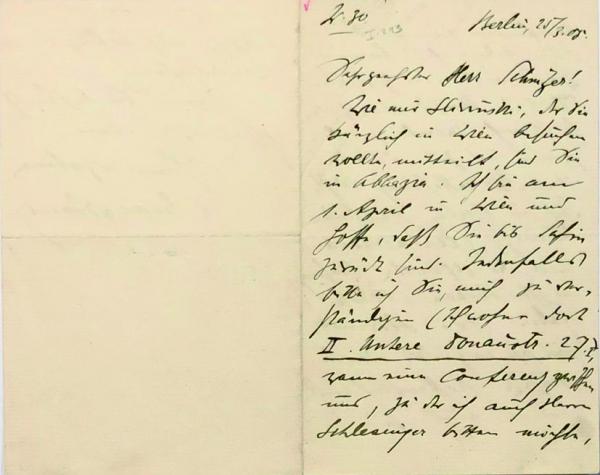 W. 30
Berlin, 25/3.05.
Sehr geehrter Herr Schnitzer!
Wie mir Sliwinski, der Sie
kürzlich in Wien besuchen
wollte, mitteilt, sind Sie
in Abbazia. Ich bin am
1. April in Wien und
hoffe, daß Sie bis dahin
zurück sind. Jedenfalls
bitte ich Sie, mich zu ver-
ständigen (Ich wohne dort
II. Untere Donaustr. 27.
wann eine Conferenz zwischen
uns, zu der ich auch Herrn
Schlesinger bitten möchte,